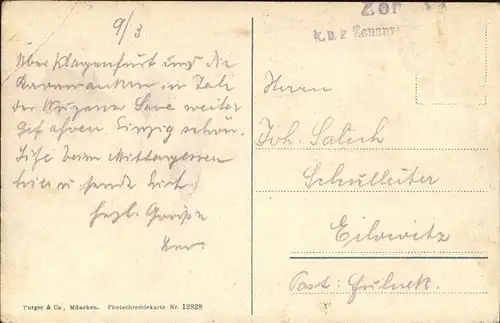 9/3
Über Klagenfurt und die
Karawanken im Tale
der Wurzener Save weiter
gefahren. Einzig schön.
Sitze beim Mittagessen
hier u. sende Dir
herzl. Grüße
Zen
k. u. k. Zensur
Herrn
Joh. Salich
Schulleiter
Eilowitz
Post: Fulnek.
Purger & Co., München. Photochromiekarte Nr. 12828